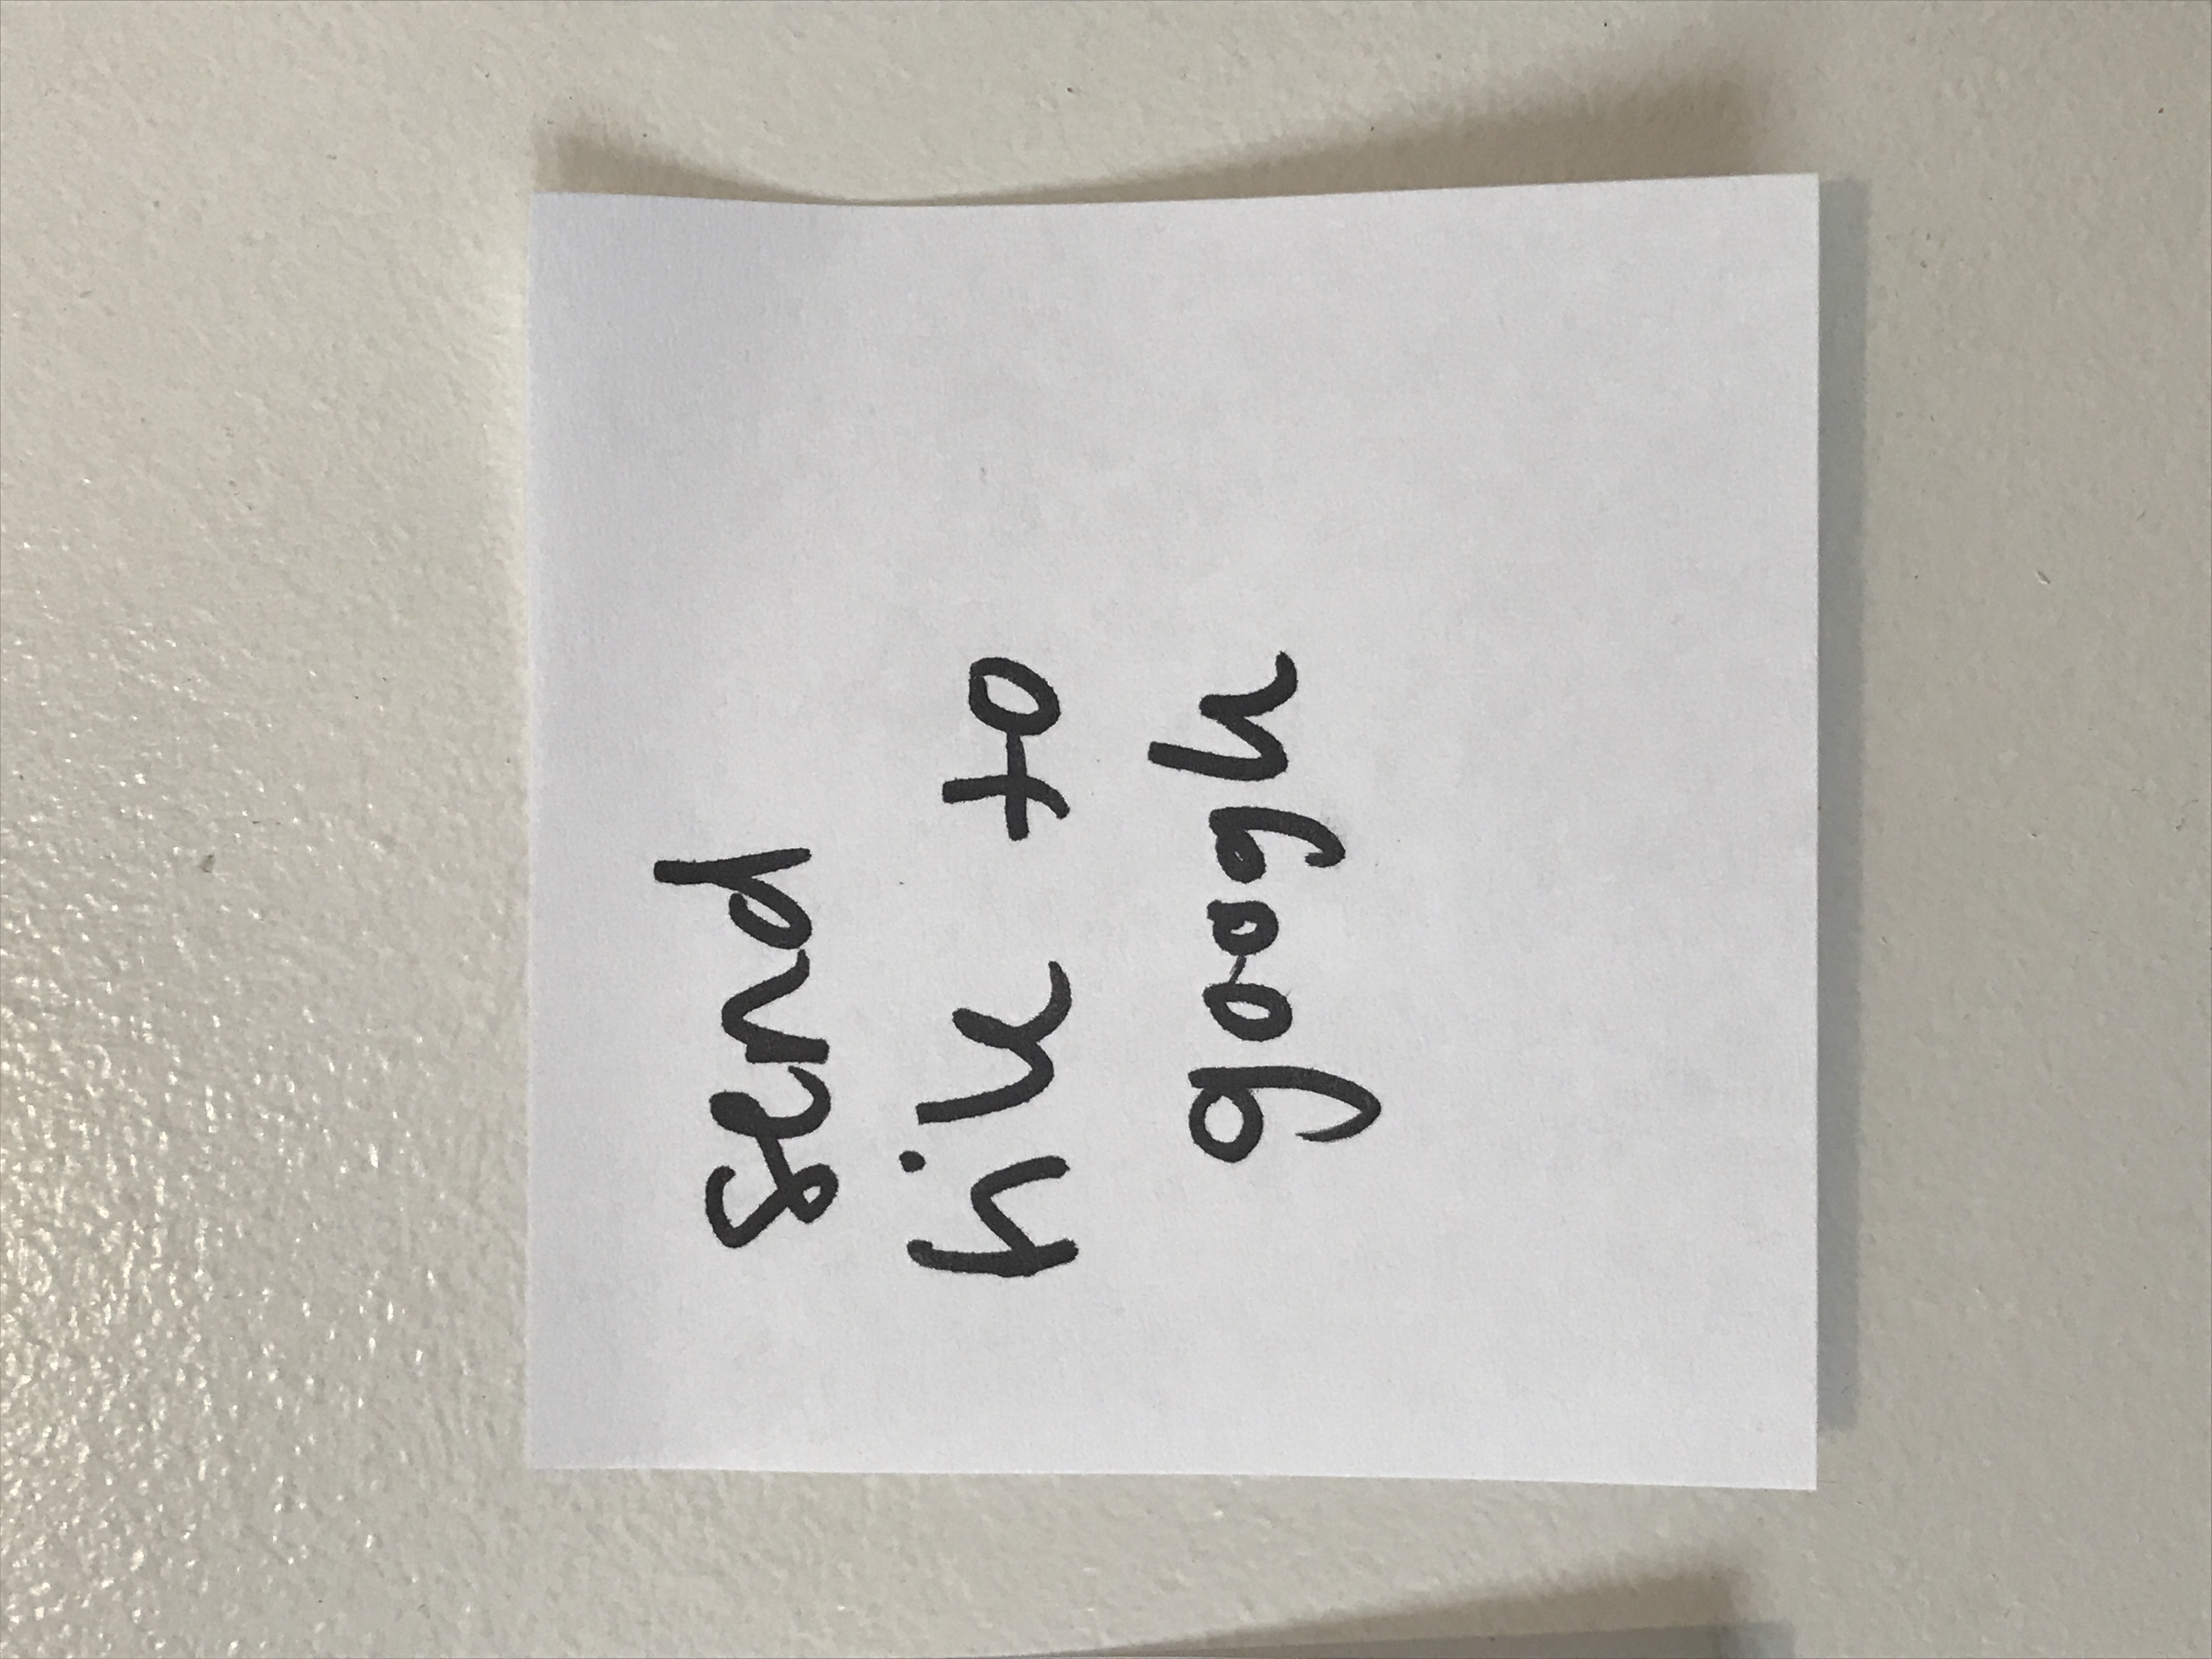 send
file to
google